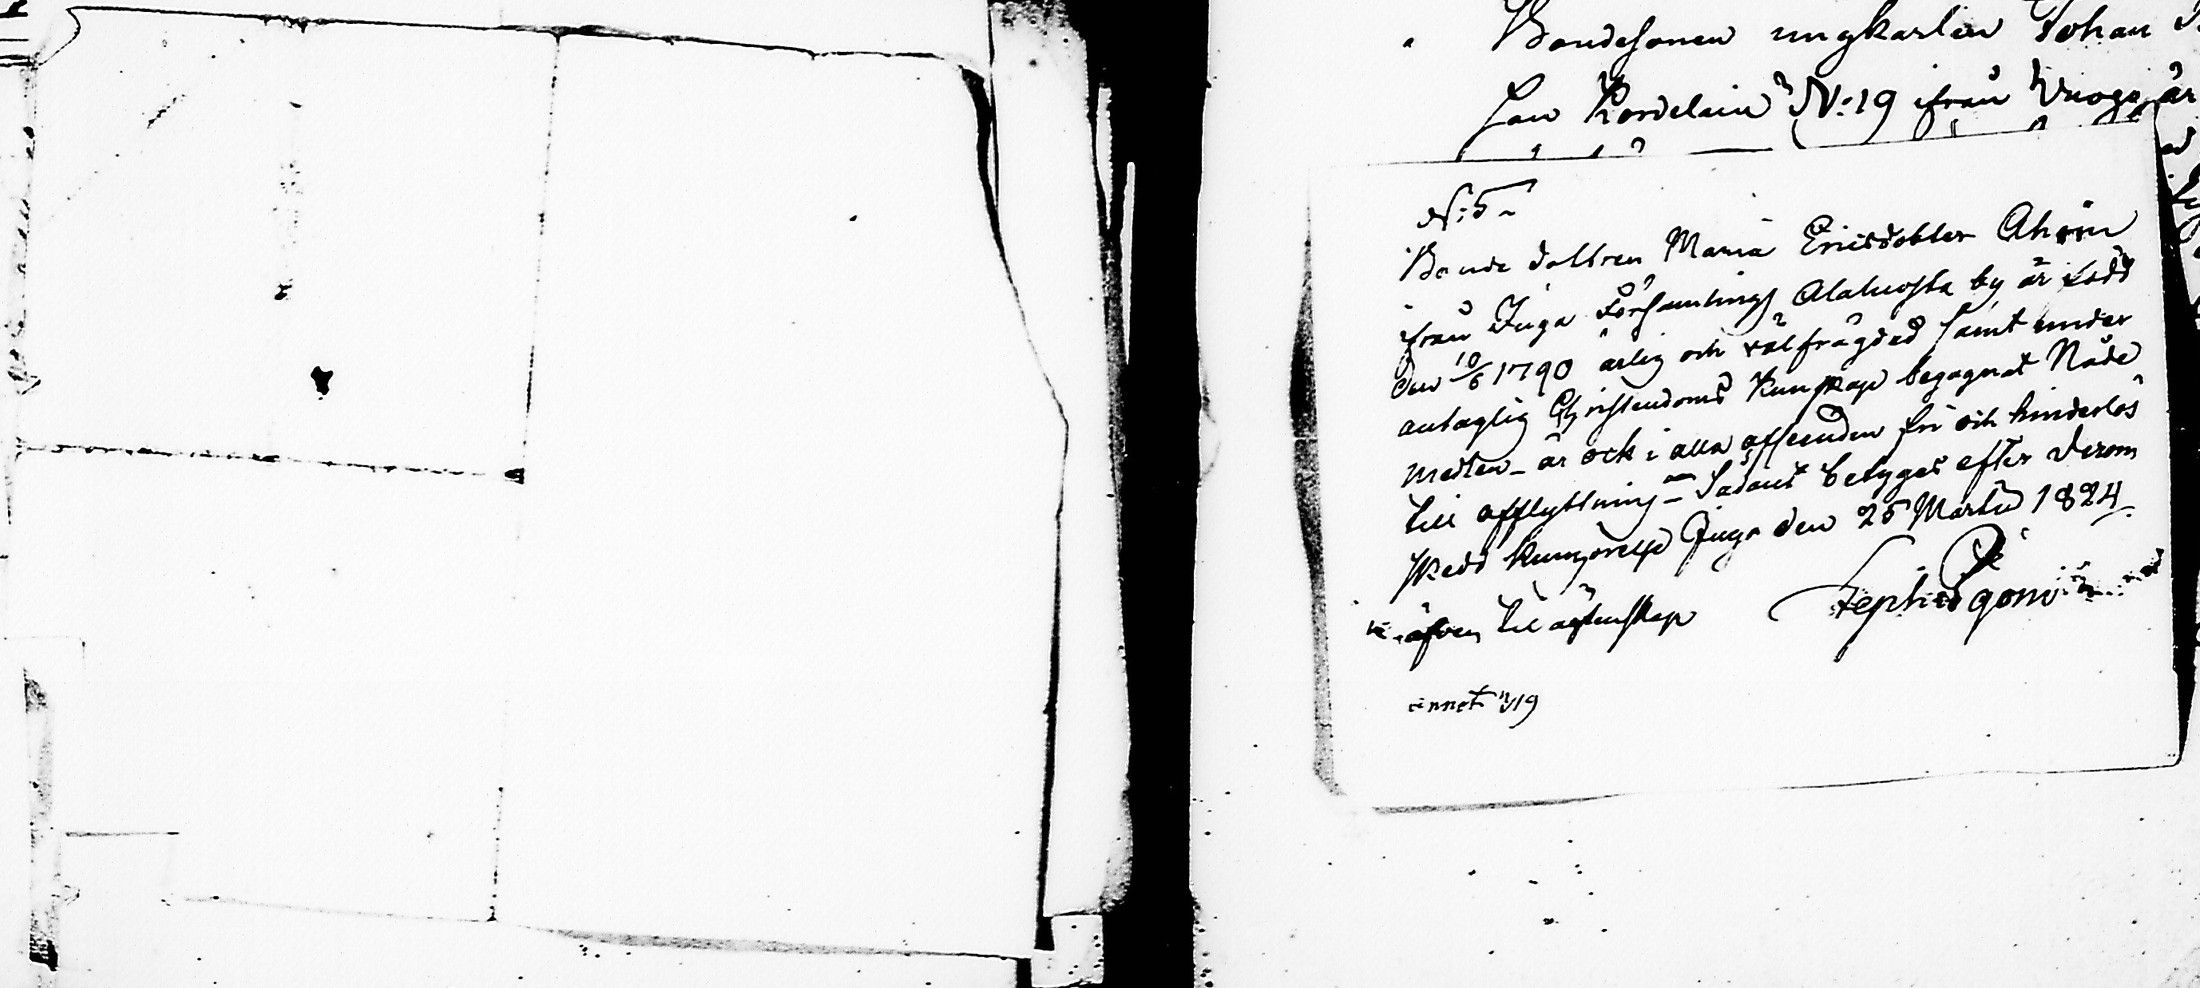 Bondesonen ungkarlen Johan
Kordelain N:19 ifrån
N:5
Bonde dottren Maria Ericsdotter Ahoin
ifrån Inga Församlings Alakuosta by är född
den 10/6 1790 ärlig och välfrägdad samt under
antaglig Christendoms Kunskap begagnat Nåde
medlen - är ock i alla afseenden fri och hinderlös
till afflyttning - Sådant betygas efter derom
skedd kungörelse Inga den 25 Martii 1824
äfven til ägtenskap
N19